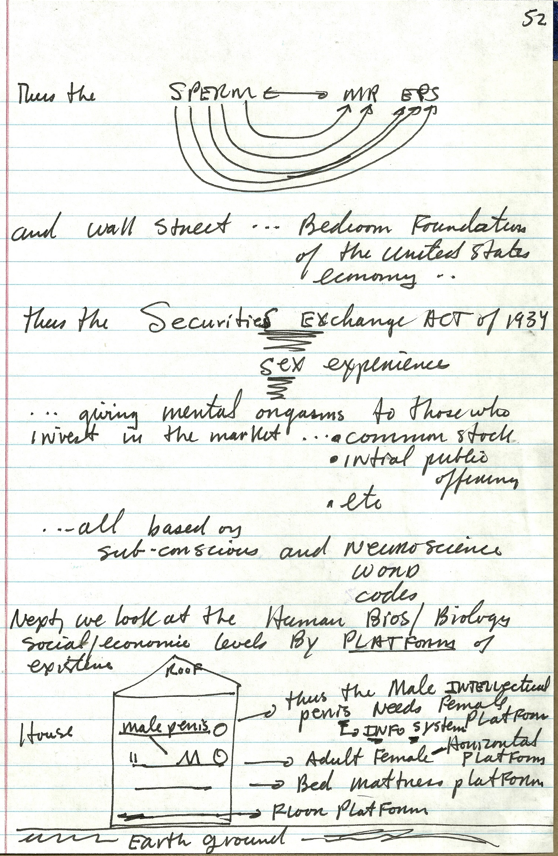 52
Thus the SPERM ↔ MR EPS
and wall street ... Bedroom Foundation
of the United States
economy ..
thus the Securities Exchange ACT of 1934
sex experience
... giving mental orgasms to those who
invest in the market ... • common stock
• intial public
offering
• etc
...all based on
sub-conscious and Neuroscience
word
codes
Next, we look at the Human Bios/Biology
social/economic levels By PLATFORMS of
existence
ROOF
thus the Male INTELLectual
penis Needs Female
Platform
INFO system
House
male penis
Adult Female Horizontal
Platform
Bed mattress platform
Floor Platform
Earth ground